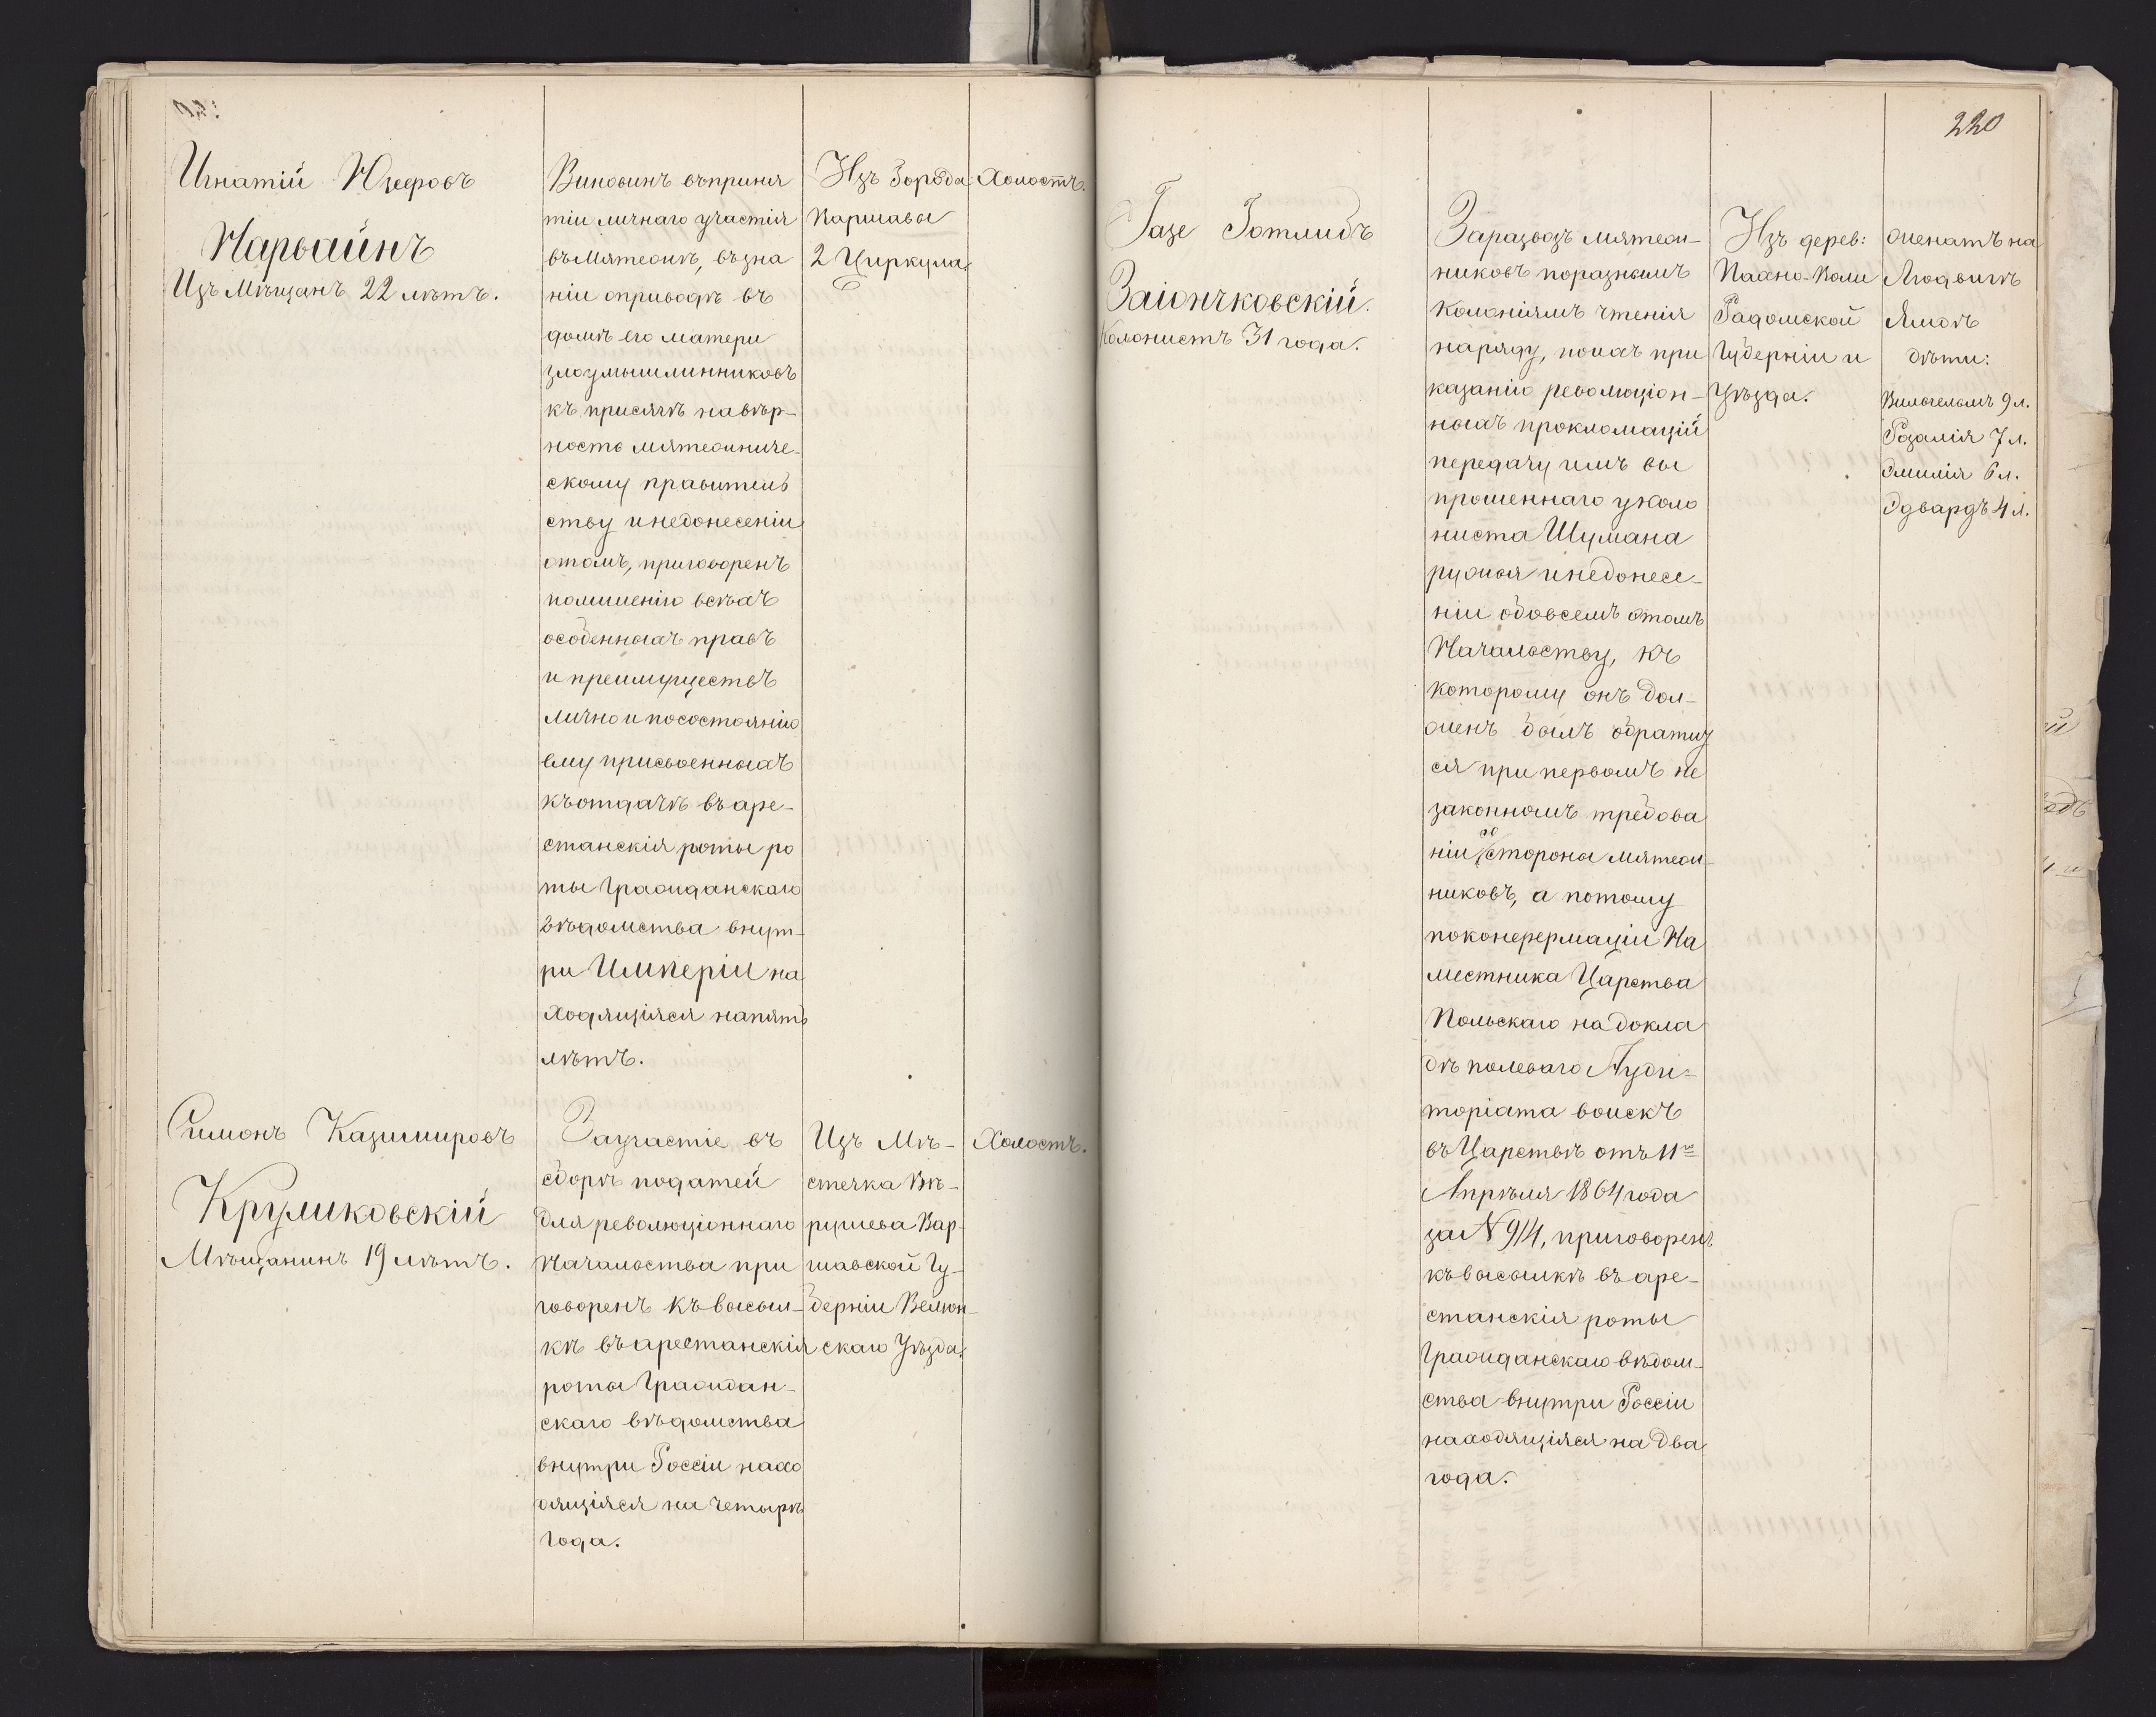 Игнатій Юзеровъ
Нарвайнъ
Изъ Мѣщанъ 22 лѣтъ.
Виновинъ въприня
тіи личнаго участія
въмятежѣ, възна
ніи оприводѣ въ
домѣ его матери
злоумышлинниковъ
къ присягѣ навѣр-
ность мятежниче-
скому правитель
ству инедонесеніи
отомъ, приговоренъ
полишенію всѣхъ
особенныхъ правъ
и преимуществъ
лично и посостоянію
ему присвоенныхъ
къотдачѣ въаре-
станскія роты ро
ты Гражданскаго
вѣдомства внут-
ри Имперіи на
ходящіяся напять
лѣтъ.
Изъ Города
Варшавы
2 Циркула
Холостъ.
Симонъ Казимировъ
Круликовскій
Мѣщанинъ 19 лѣтъ.
Заучастіе въ
сборѣ податей
для революціоннаго
Начальства при
говоренъ къвысыл-
кѣ въарестанскія
роты Граждан-
скаго вѣдомства
внутри Россіи нахо
дящіяся на четырѣ
года.
Изъ Мѣ-
стечка Вѣ-
рушева Вар-
шавской Гу-
берніи Велюн-
скаго Уѣзда.
Холостъ.
220
Газе Готлибъ
Заіончковскій.
Колонистъ 31 года.
Заразвозъ мятеж-
никовъ поразнымъ
колоніямъ чтенія
наряду, понихъ при
казанію революціон-
ныхъ прокломацій
передачу имъ вы
прошеннаго уколо
ниста Шумана
ружья инедонесе-
ніи обовсемъ этомъ
Начальству, къ
которому онъ дол-
женъ былъ обратит
ся при первомъ не
законномъ требова
ніи со стороны мятеж-
никовъ, а потому
поконфермаціи На
местника Царства
Польскаго на докла
дѣ полеваго Ауди-
торіата воискъ
въ Царствѣ отъ 11го
Апрѣля 1864 года
за N 914, приговоренъ
къвысылкѣ въаре-
станскія роты
Гражданскаго вѣдом-
ства внутри Россіи
находящіяся на два
года.
Изъ дерев:
Пахно-Воли
Радомской
Губерніи и
Уѣзда.
женатъ на
Людвигѣ
Ямовъ
дѣти:
Вильгельмъ 9 л.
Розалія 7 л.
Эмилія 6 л.
Эдвардъ 4 л.